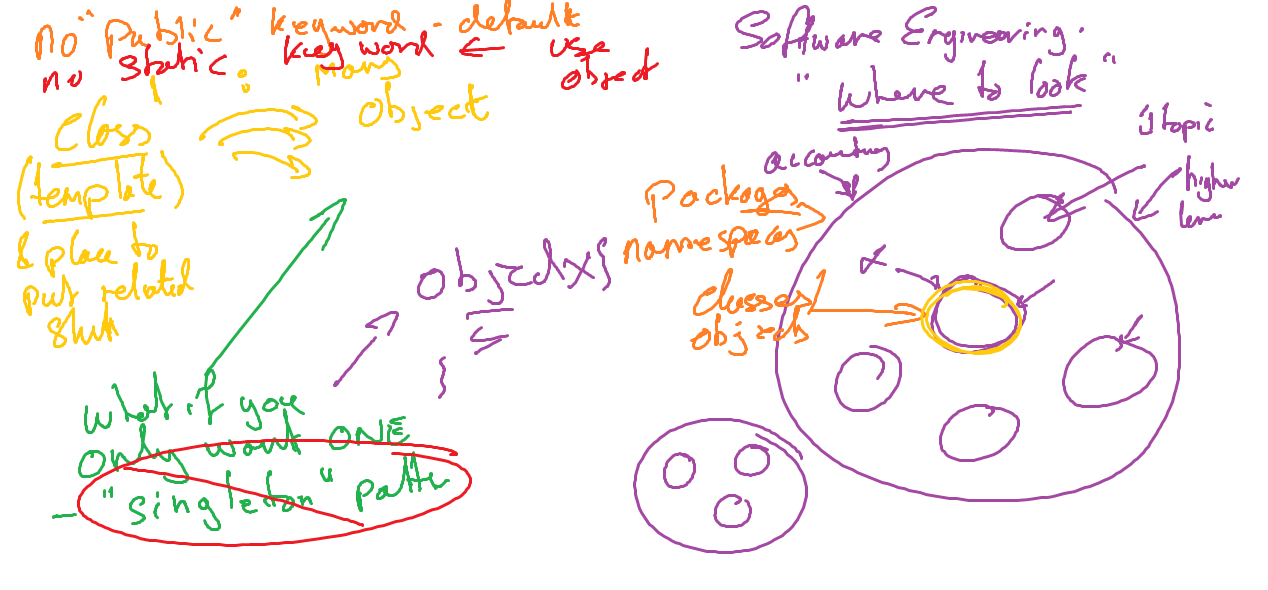 no "Public" keyword - default
no static keyword ← use object
class : many object
(template)
& place to
put related
stuff
What if you
only want ONE
- "singleton" patte
object x {
}
Software Engineering.
"where to look"
accounting
1 topic
higher
Packages
namespaces
classes/
objects